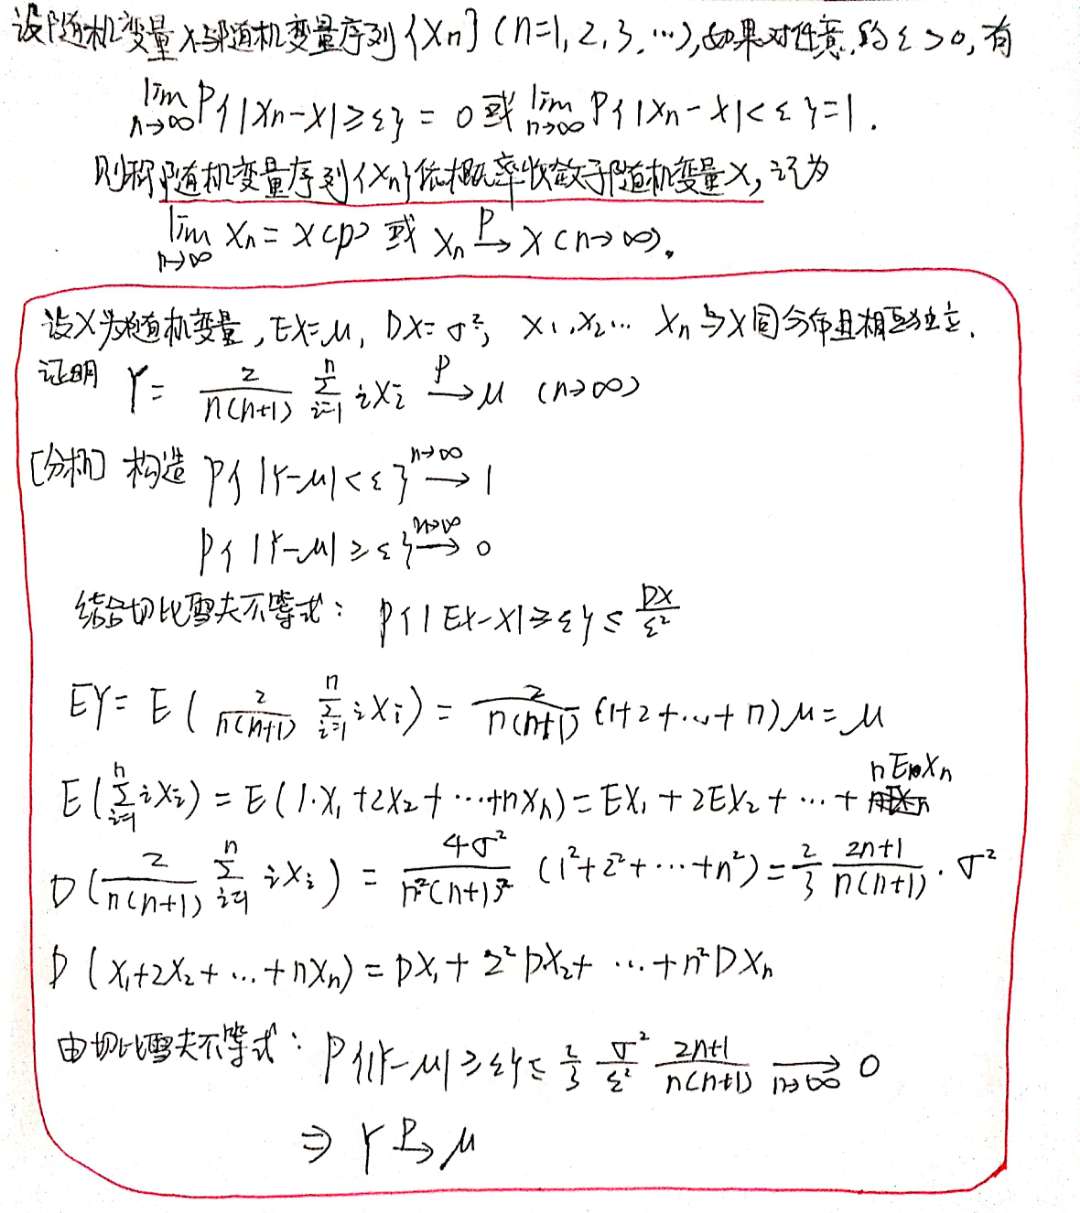 设随机变量X与随机变量序列{Xn}(n=1,2,3,…),如果对任意的ε>0,有
lim n→∞ P{|Xn-X|≥ε}=0或 lim n→∞ P{|Xn-X|<ε}=1.
则称随机变量序列{Xn}依概率收敛于随机变量X,记为
lim n→∞ Xn=X(P)或 Xn P→ X(n→∞)。
设X为随机变量,EX=μ, DX=σ², X1,X2… Xn与X同分布且相互独立.
证明 Y= 2/(n(n+1)) Σ(i=1→n) iXi P→ μ (n→∞)
[分析] 构造 P{|Y-μ|<ε} n→∞→ 1
P{|Y-μ|≥ε} n→∞→ 0
结合切比雪夫不等式: P{|EX-X|≥ε}≤ DX/ε²
EY=E( 2/(n(n+1)) Σ(i=1→n) iXi)= 2/(n(n+1)) (1+2+…+n)μ=μ
E(Σ(i=1→n) iXi)=E(1·X1+2X2+…+nXn)=EX1+2EX2+…+nEXn
D( 2/(n(n+1)) Σ(i=1→n) iXi)= 4σ²/(n²(n+1)²) (1²+2²+…+n²)= 2/3 (2n+1)/(n(n+1)) · σ²
D(X1+2X2+…+nXn)=DX1+2²DX2+…+n²DXn
由切比雪夫不等式: P{|Y-μ|≥ε}≤ 2/3 σ²/ε² (2n+1)/(n(n+1)) n→∞→ 0
⇒ Y P→ μ